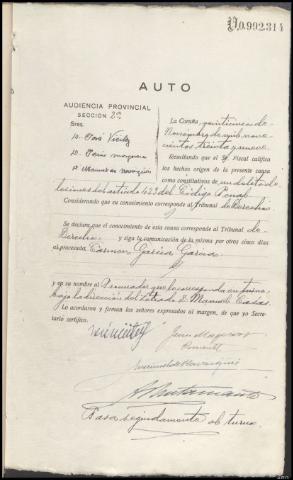 V0.992.314
AUTO
AUDIENCIA PROVINCIAL
SECCION 2ª
Sres.
D. José
D. Jesús
D. Manuel de
La Coruña, veinticinco de
Noviembre de mil nove-
cientos treinta y nueve.
Resultando que el Sr. Fiscal califica
los hechos origen de la presente causa
como constitutivos de un delito de
lesiones del artículo 423 del Código Penal
Considerando que su conocimiento corresponde al Tribunal de Derecho
Se declara que el conocimiento de esta causa corresponde al Tribunal de
Derecho y siga la comunicación de la misma por otros cinco días
al procesado, Carmen García García
y en su nombre al Procurador que le corresponda en turno,
bajo la dirección del Letrado D. Manuel Casas.
Lo acordaron y firman los señores expresados al margen, de que yo Secre-
tario certifico.
Pasa seguidamente al turno.